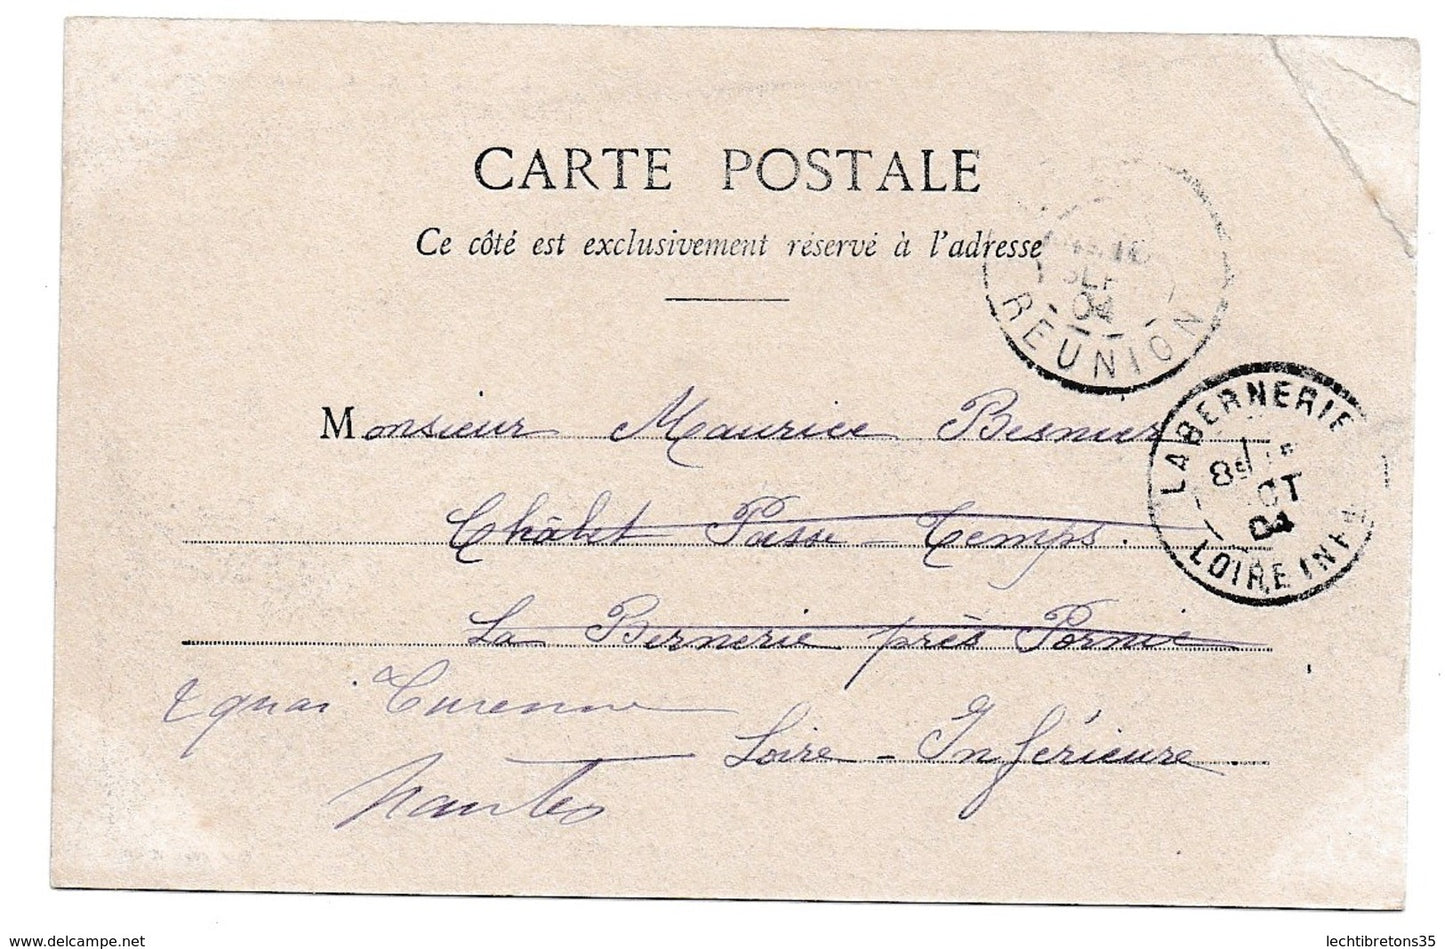 CARTE POSTALE
Ce côté est exclusivement réservé à l'adresse
SEP
04
REUNION
Monsieur Maurice Besnier
LA BERNERIE
8E
OCT
04
LOIRE INFRE
Châlet Passe-Temps.
La Bernerie près Pornic
quai Turenne
Loire-Inférieure
Nantes
www.delcampe.net
lechtibretons35